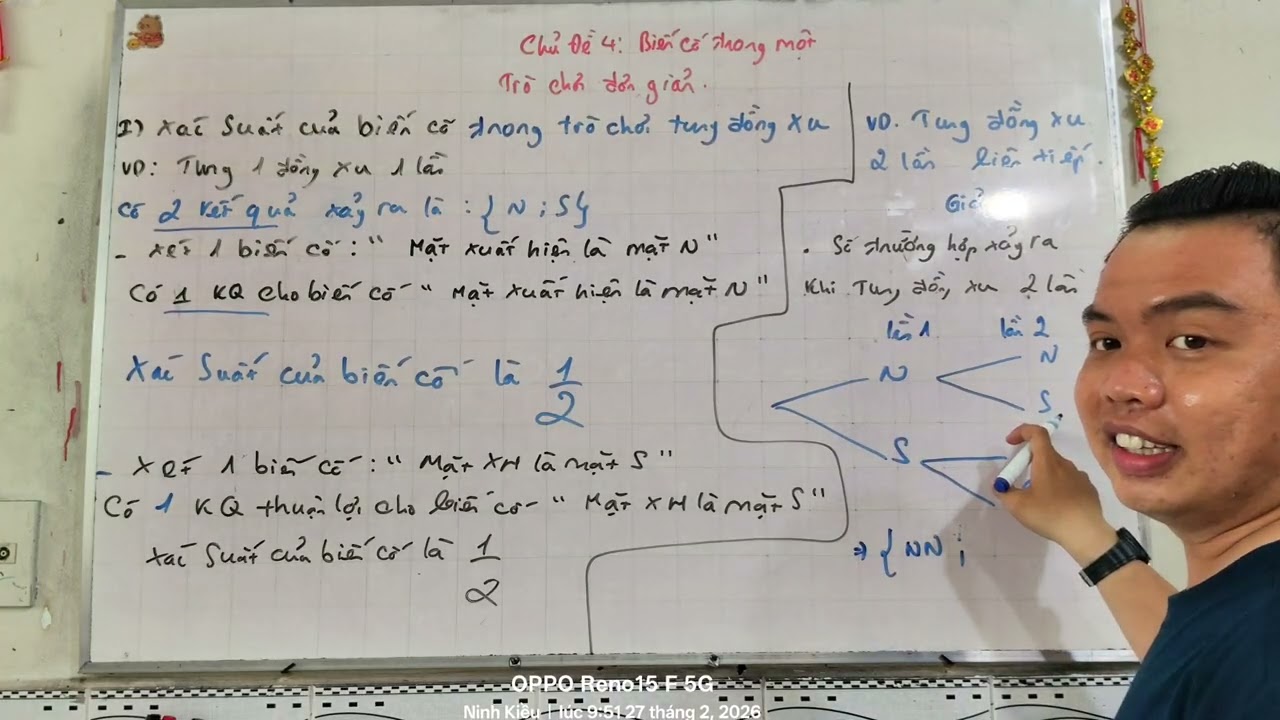 Chủ Đề 4: Biến cố trong một
Trò chơi đơn giản.
I) Xác Suất của biến cố trong trò chơi tung đồng xu
VD: Tung 1 đồng xu 1 lần
Có 2 kết quả xảy ra là: {N; S}
- Xét 1 biến cố: "Mặt xuất hiện là mặt N"
Có 1 KQ cho biến cố "Mặt xuất hiện là mặt N"
Xác Suất của biến cố là 1/2
- Xét 1 biến cố: "Mặt XH là mặt S"
Có 1 KQ thuận lợi cho biến cố "Mặt XH là mặt S"
Xác Suất của biến cố là 1/2
VD. Tung đồng xu
2 lần liên tiếp.
Giả
. Số trường hợp xảy ra
Khi Tung đồng xu 2 lần
lần 1 lần 2
N
N
S
S
⇒ {NN;
OPPO Reno15 F 5G
Ninh Kiều | lúc 9:51 27 tháng 2, 2026